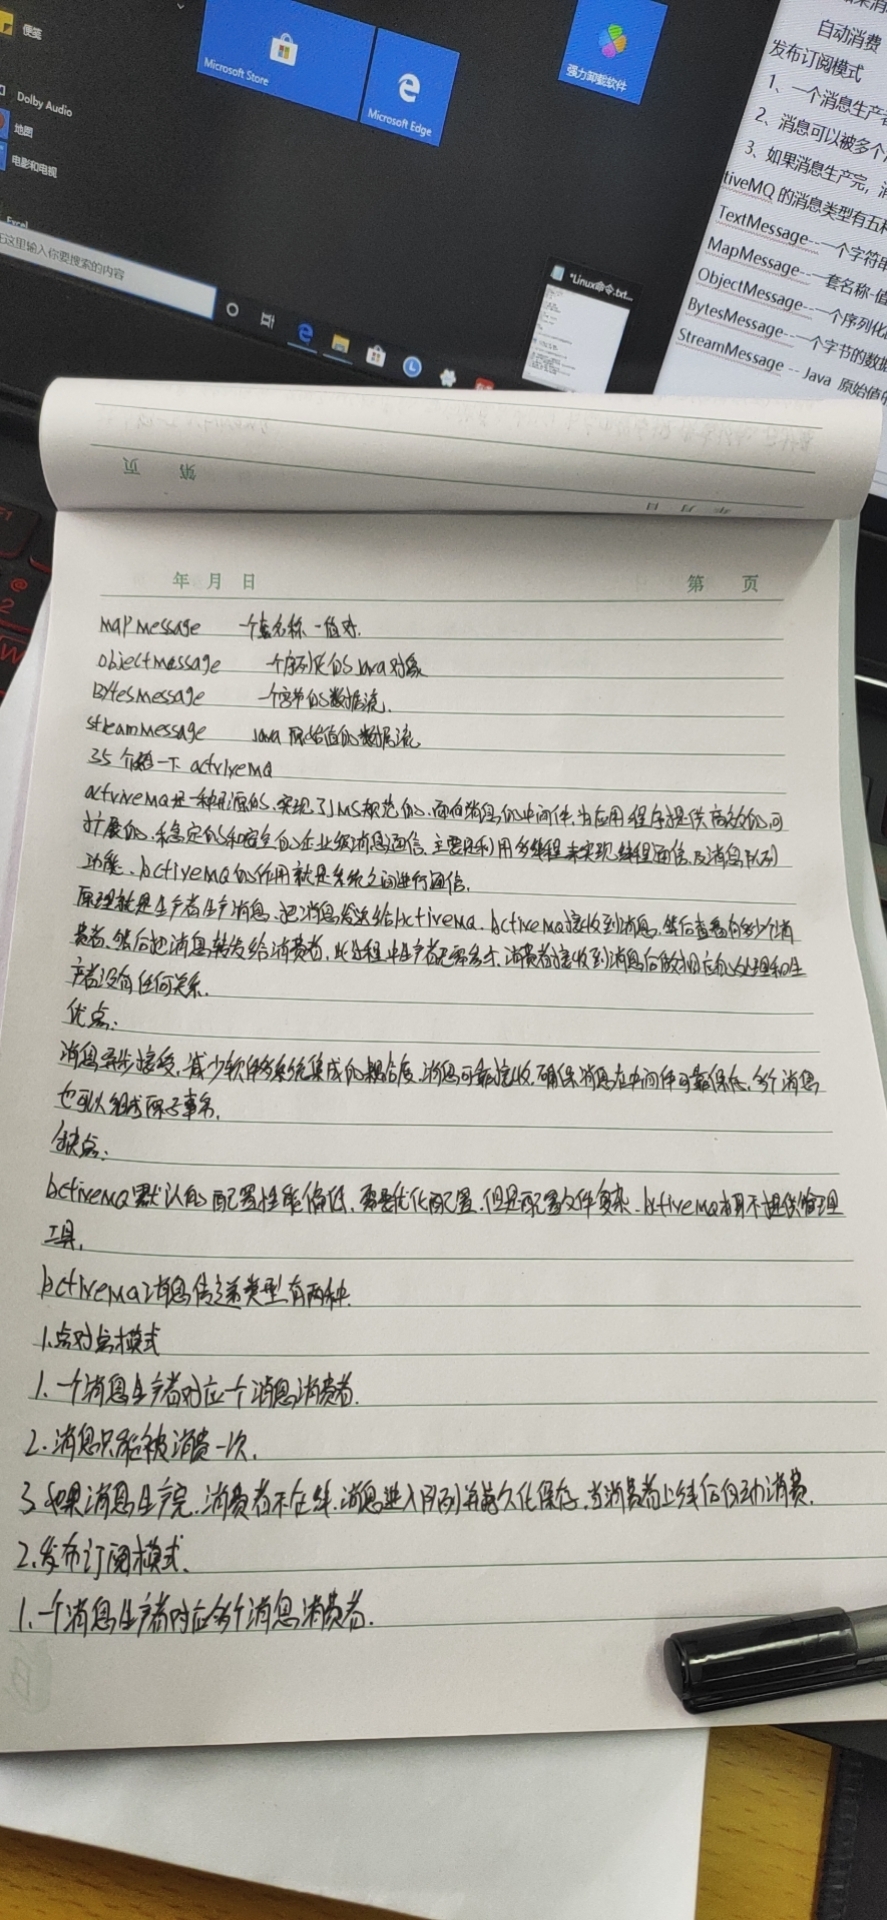 便笺
Dolby Audio
地图
电影和电视
Excel
在这里输入你要搜索的内容
Microsoft Store
Microsoft Edge
强力卸载软件
*Linux命令.txt...
自动消费
发布订阅模式
1、一个消息生产者
2、消息可以被多个
3、如果消息生产完，消
tiveMQ 的消息类型有五种
TextMessage--一个字符串
MapMessage--一套名称-值
ObjectMessage--一个序列化
BytesMessage--一个字节的数据
StreamMessage -- Java 原始值
第 页
年 月 日
年 月 日 第 页
mapmessage 一个套名称-值对.
objectmessage 一个序列化的Java对象
Bytesmessage 一个字节的数据流.
streammessage Java 原始值的数据流
35 介绍一下 activemq
activemq是一种开源的.实现了JMS规范的.面向消息的中间件,为应用程序提供高效的可
扩展的.稳定的和安全的企业级消息通信.主要是利用多线程来实现线程通信及消息队列
功能.bctivemq的作用就是系统之间进行通信.
原理就是生产者生产消息.把消息发送给bctivemq.bctivemq接收到消息.然后查看有多少个消
费者.然后把消息转发给消费者,此过程中生产者无需参与.消费者接收到消息后做相应的处理和生
产者没有任何关系.
优点:
消息异步接受,减少软件多系统集成的耦合度.消息可靠接收.确保消息在中间件可靠保存.多个消息
也可以组成原子事务.
缺点:
bctivemq默认的配置性能偏低.需要优化配置.但是配置文件复杂.bctivemq本身不提供管理
工具.
bctivemq消息传递类型有两种.
1.点对点模式
1.一个消息生产者对应一个消息消费者.
2.消息只能被消费一次.
3.如果消息生产完.消费者不在线.消息进入队列并持久化保存.当消费者上线后自动消费.
2.发布订阅模式.
1.一个消息生产者对应多个消息消费者.